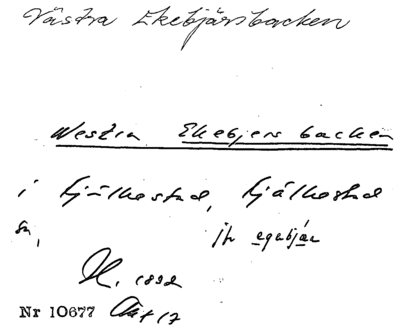 Västra Ekebjärsbacken
Westra Ekebjers backen
i Kjälkestad, Kjälkestad
sn, jfr egebjär
H. 1892
Nr 10677 Akt 17